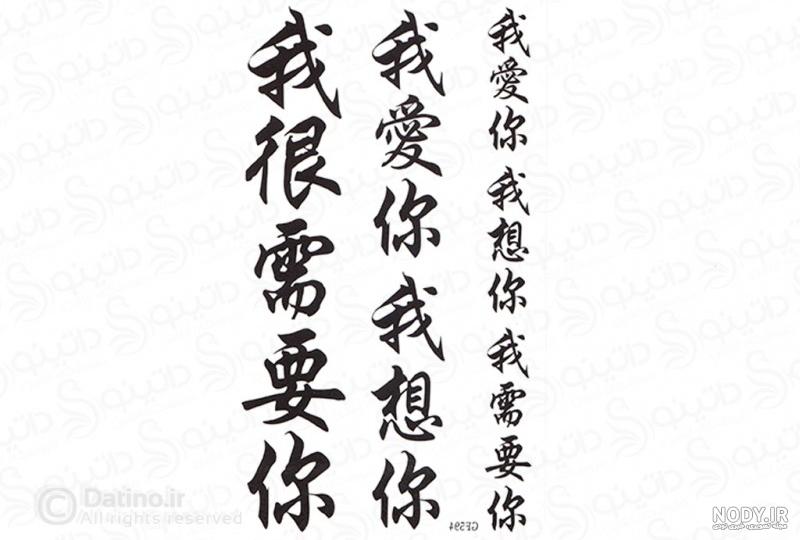 我愛你我想你我需要你
我愛你我想你
我很需要你
© Datino.ir
All rights reserved
NODY.IR
داتینو